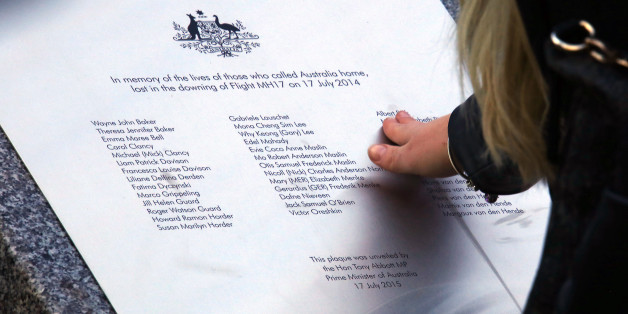 In memory of the lives of those who called Australia home,
lost in the downing of Flight MH17 on 17 July 2014
Wayne John Baker
Theresa Jennifer Baker
Emma Maree Bell
Carol Clancy
Michael (Mick) Clancy
Liam Patrick Davison
Francesca Louise Davison
Liliane Derden
Fatima Dyczynski
Marco Grippeling
Jill Helen Guard
Roger Watson Guard
Howard Ramon Horder
Susan Marilyn Horder
Gabriele Lauschet
Mona Cheng Sim Lee
Why Keong (Gary) Lee
Edel Mahady
Evie Coco Anne Maslin
Mo Robert Anderson Maslin
Otis Samuel Frederick Maslin
Nicoll Charles Anderson
Mary (MER) Elizabeth Menke
Gerardus (GER) Frederik Menke
Dafne Nieveen
Jack Samuel O'Brien
Victor Oreshkin
Albert
van den Hende
Margaux van den Hende
This plaque was unveiled by
the Hon Tony Abbott MP
Prime Minister of Australia
17 July 2015